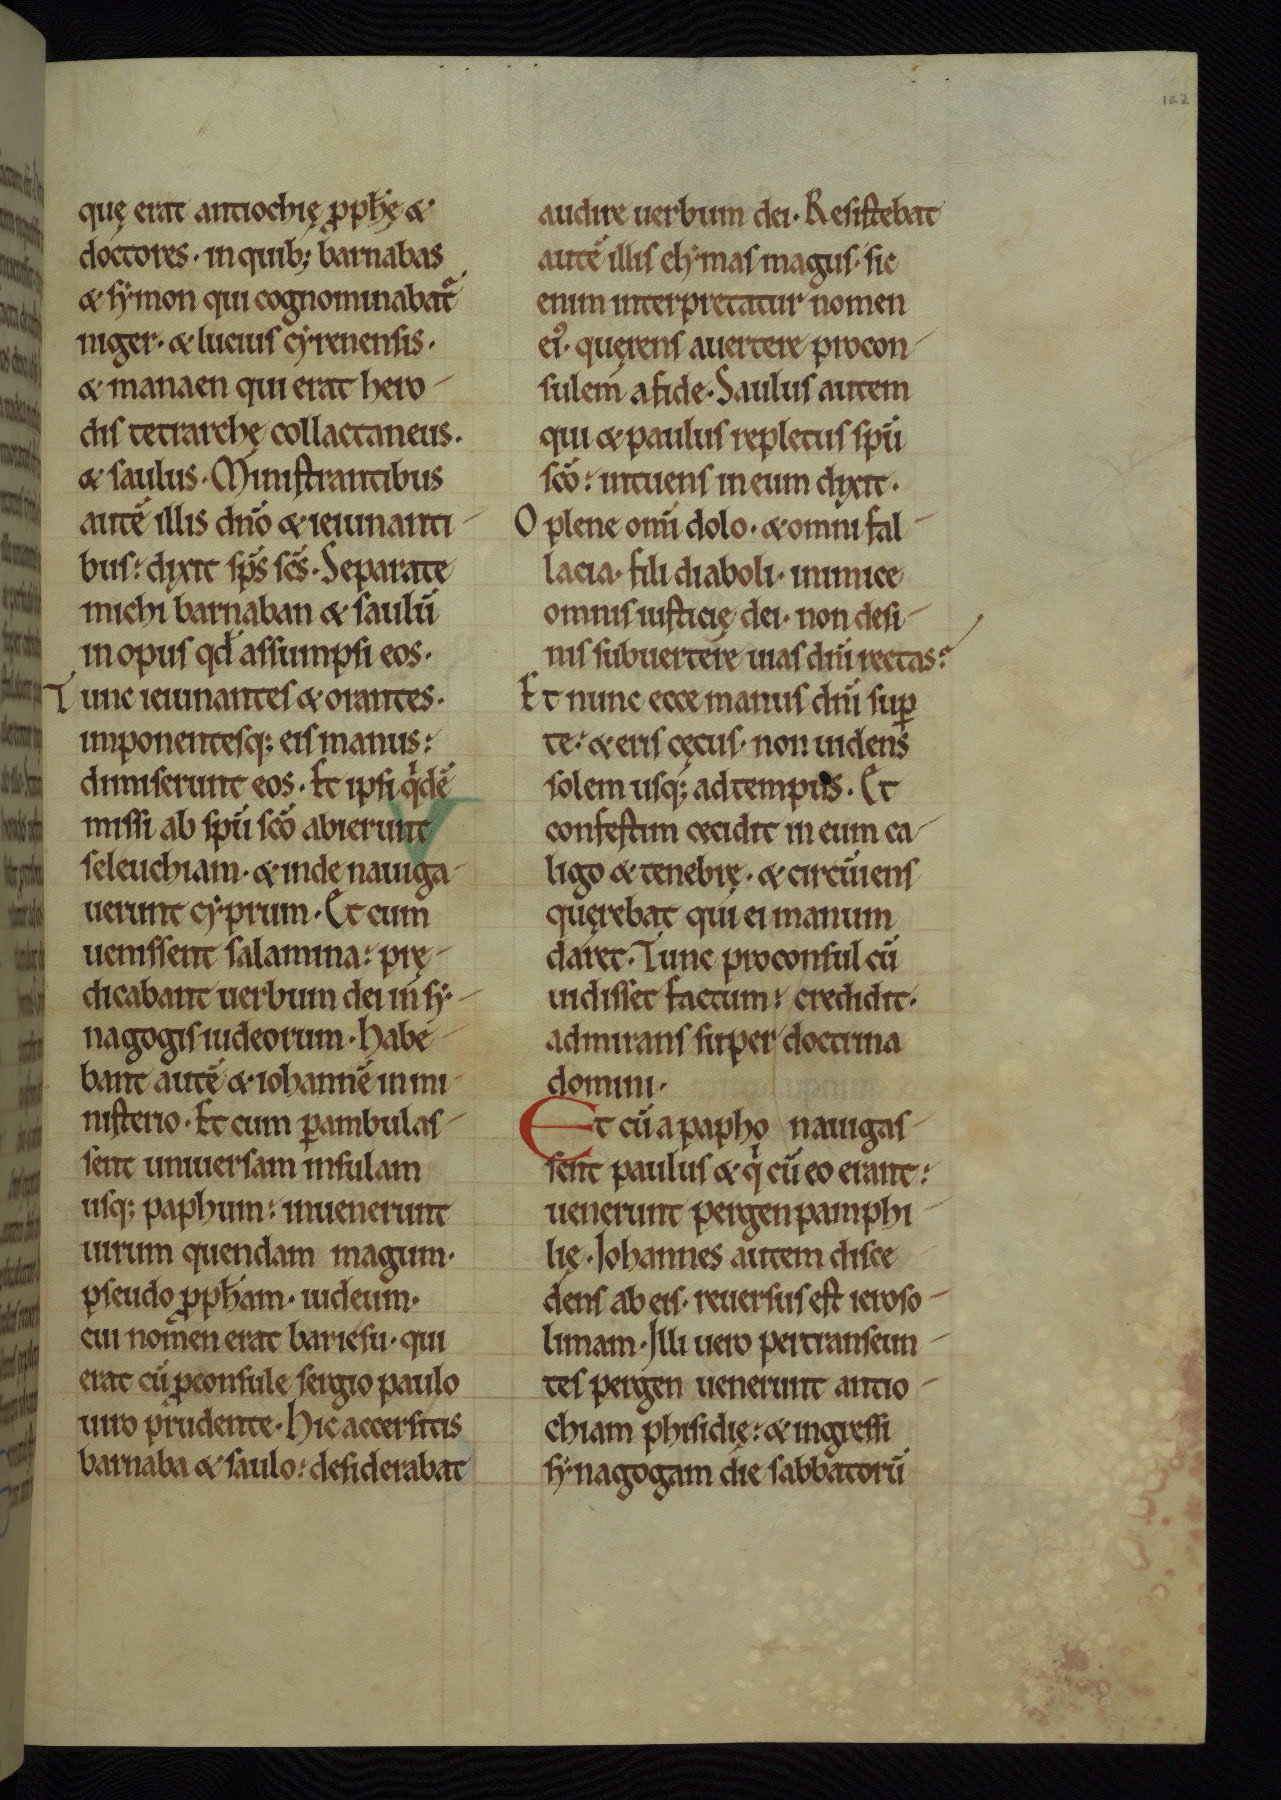 122
quę erat antiochię ꝓph̄ę &
doctores · in quib; barnabas
& sẏmon qui cognominabat᷑
niger · & lucius cẏrenensis ·
& manaen qui erat hero
dis tetrarchę collactaneus ·
& saulus · Ministrantibus
autē illis dn̄o & ieiunanti
bus: dixit sp̄s sc̄s · Separate
michi barnaban & saulū
in opus qd̄ assumpsi eos ·
Tunc ieiunantes & orantes ·
imponentesq; eis manus:
dimiserunt eos · Et ipsi qⁱdē
missi ab sp̄u sc̄o abierunt
seleuchiam · & inde nauiga
uerunt cẏprum · Et cum
uenissent salamina: prę
dicabant uerbum dei in sẏ
nagogis iudeorum · habe
bant autē & iohannē in mi
nisterio · Et cum ꝑambulas
sent uniuersam insulam
usq; paphum: inuenerunt
uirum quendam magum ·
pseudo ꝓph̄am · iudeum ·
cui nomen erat bariesu · qui
erat cū ꝓconsule sergio paulo
uiro prudente · hic accersitis
barnaba & saulo: desiderabat
audire uerbum dei · Resistebat
autē illis elẏmas magus · sic
enim interpretatur nomen
eiꝰ · quęrens auertere procon
sulem a fide · Saulus autem
qui & paulus repletus sp̄u
sc̄o: intuens in eum dixit ·
O plene om̄i dolo · & omni fal
lacia · fili diaboli · inimice
omnis iusticię dei · non desi
nis subuertere uias dn̄i rectas:
Et nunc ecce manus dn̄i suꝑ
te: & eris cęcus · non uidens
solem usq; ad tempus · Et
confestim cecidit in eum ca
ligo & tenebrę · & circūiens
quęrebat qui ei manum
daret · Tunc proconsul cū
uidisset factum: credidit ·
admirans super doctrina
domini ·
Et cū a papho nauigas
sent paulus & qⁱ cū eo erant:
uenerunt pergen pamphi
lię · Iohannes autem disce
dens ab eis · reuersus est ieroso
limam · Illi uero pertranseun
tes pergen uenerunt antio
chiam phisidię: & ingressi
sẏnagogam die sabbatorū